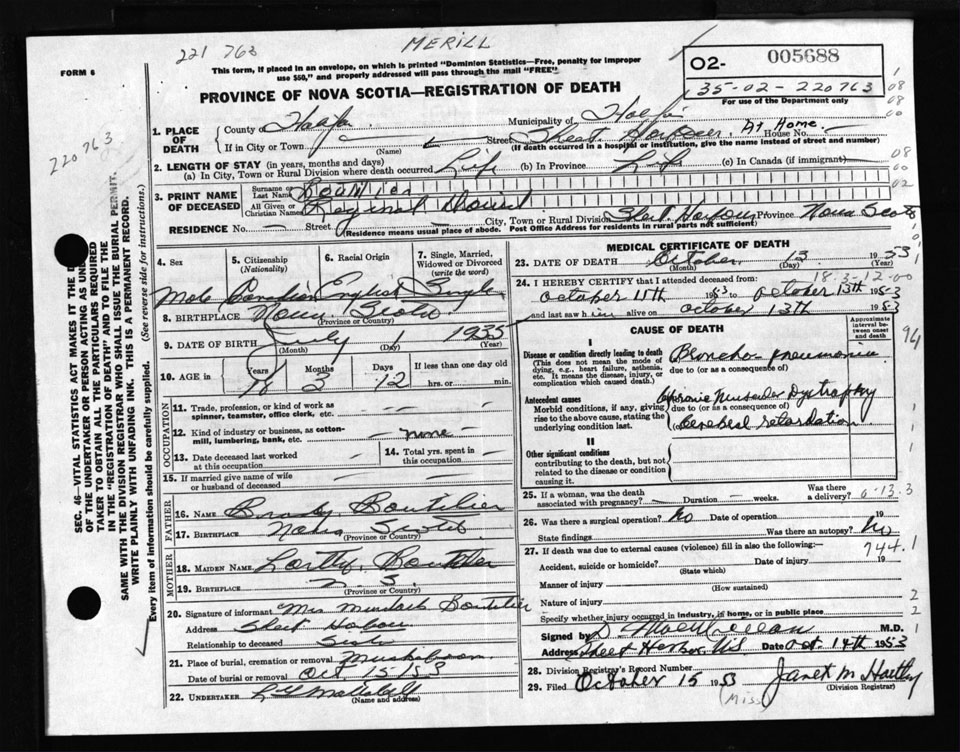 221 763
MERILL
FORM 6
This form, if placed in an envelope, on which is printed "Dominion Statistics—Free, penalty for improper
use $50," and properly addressed will pass through the mail "FREE"
O2- 005688
35-02-220763
For use of the Department only
PROVINCE OF NOVA SCOTIA—REGISTRATION OF DEATH
220763
SEC. 46—VITAL STATISTICS ACT MAKES IT THE D
OF THE UNDERTAKER OR PERSON ACTING AS UND
TAKER TO OBTAIN ALL THE PARTICULARS REQUIRED
IN THE "REGISTRATION OF DEATH" AND TO FILE THE
SAME WITH THE DIVISION REGISTRAR WHO SHALL ISSUE THE BURIAL PERMIT.
WRITE PLAINLY WITH UNFADING INK. THIS IS A PERMANENT RECORD.
Every item of information should be carefully supplied. (See reverse side for instructions.)
1. PLACE OF DEATH
County of Halifax Municipality of Halifax
If in City or Town Street Sheet Harbour, At Home. House No.
(Name) (If death occurred in a hospital or institution, give the name instead of street and number)
2. LENGTH OF STAY (in years, months and days)
(a) In City, Town or Rural Division where death occurred Life (b) In Province Life (c) In Canada (if immigrant)
3. PRINT NAME OF DECEASED
Surname or Last Name Boutilier
All Given or Christian Names Reginal David
RESIDENCE No. — Street — City, Town or Rural Division Sheet Harbour Province Nova Scotia
(Residence means usual place of abode. Post Office Address for residents in rural parts not sufficient)
4. Sex
5. Citizenship (Nationality)
6. Racial Origin
7. Single, Married, Widowed or Divorced (write the word)
Male Canadian English Single
8. BIRTHPLACE Nova Scotia
(Province or Country)
9. DATE OF BIRTH July 1 1935
(Month) (Day) (Year)
10. AGE in Years Months Days If less than one day old
18 3 12 hrs. or min.
OCCUPATION
11. Trade, profession, or kind of work as
spinner, teamster, office clerk, etc. — —
12. Kind of industry or business, as cotton-
mill, lumbering, bank, etc. — none —
13. Date deceased last worked
at this occupation — 14. Total yrs. spent in
this occupation —
15. If married give name of wife
or husband of deceased — —
FATHER
16. NAME Boutilier
17. BIRTHPLACE Nova Scotia
(Province or Country)
MOTHER
18. MAIDEN NAME
19. BIRTHPLACE N. S.
(Province or Country)
20. Signature of informant Mrs Murdock Boutilier
Address Sheet Harbour
Relationship to deceased
21. Place of burial, cremation or removal
Date of burial or removal Oct 15/53
22. UNDERTAKER
(Name and address)
MEDICAL CERTIFICATE OF DEATH
23. DATE OF DEATH October 13 1953
(Month) (Day) (Year)
18-3-12-00
24. I HEREBY CERTIFY that I attended deceased from:
October 11th 1953 to October 13th 1953
and last saw him alive on October 13th 1953
CAUSE OF DEATH
Approximate interval between onset and death
94
I
Disease or condition directly leading to death
(This does not mean the mode of
dying, e.g., heart failure, asthenia,
etc. It means the disease, injury, or
complication which caused death.)
Broncho-pneumonia
due to (or as a consequence of)
Antecedent causes
Morbid conditions, if any, giving
rise to the above cause, stating the
underlying condition last.
Chronic Muscular Dystrophy
due to (or as a consequence of)
Cerebral retardation
II
Other significant conditions
contributing to the death, but not
related to the disease or condition
causing it.
25. If a woman, was the death
associated with pregnancy? — Duration — weeks. Was there
a delivery?
0-13.3
26. Was there a surgical operation? No Date of operation 19
State findings Was there an autopsy? No
27. If death was due to external causes (violence) fill in also the following:—
744.1
Accident, suicide or homicide? Date of injury 19
(State which)
Manner of injury
(How sustained)
Nature of injury
Specify whether injury occurred in industry, in home, or in public place
Signed by M.D.
Address Sheet Harbor, N.S. Date Oct. 14th 1953
28. Division Registrar's Record Number
29. Filed October 15 1953 Janet M Hartley
(Miss) (Division Registrar)